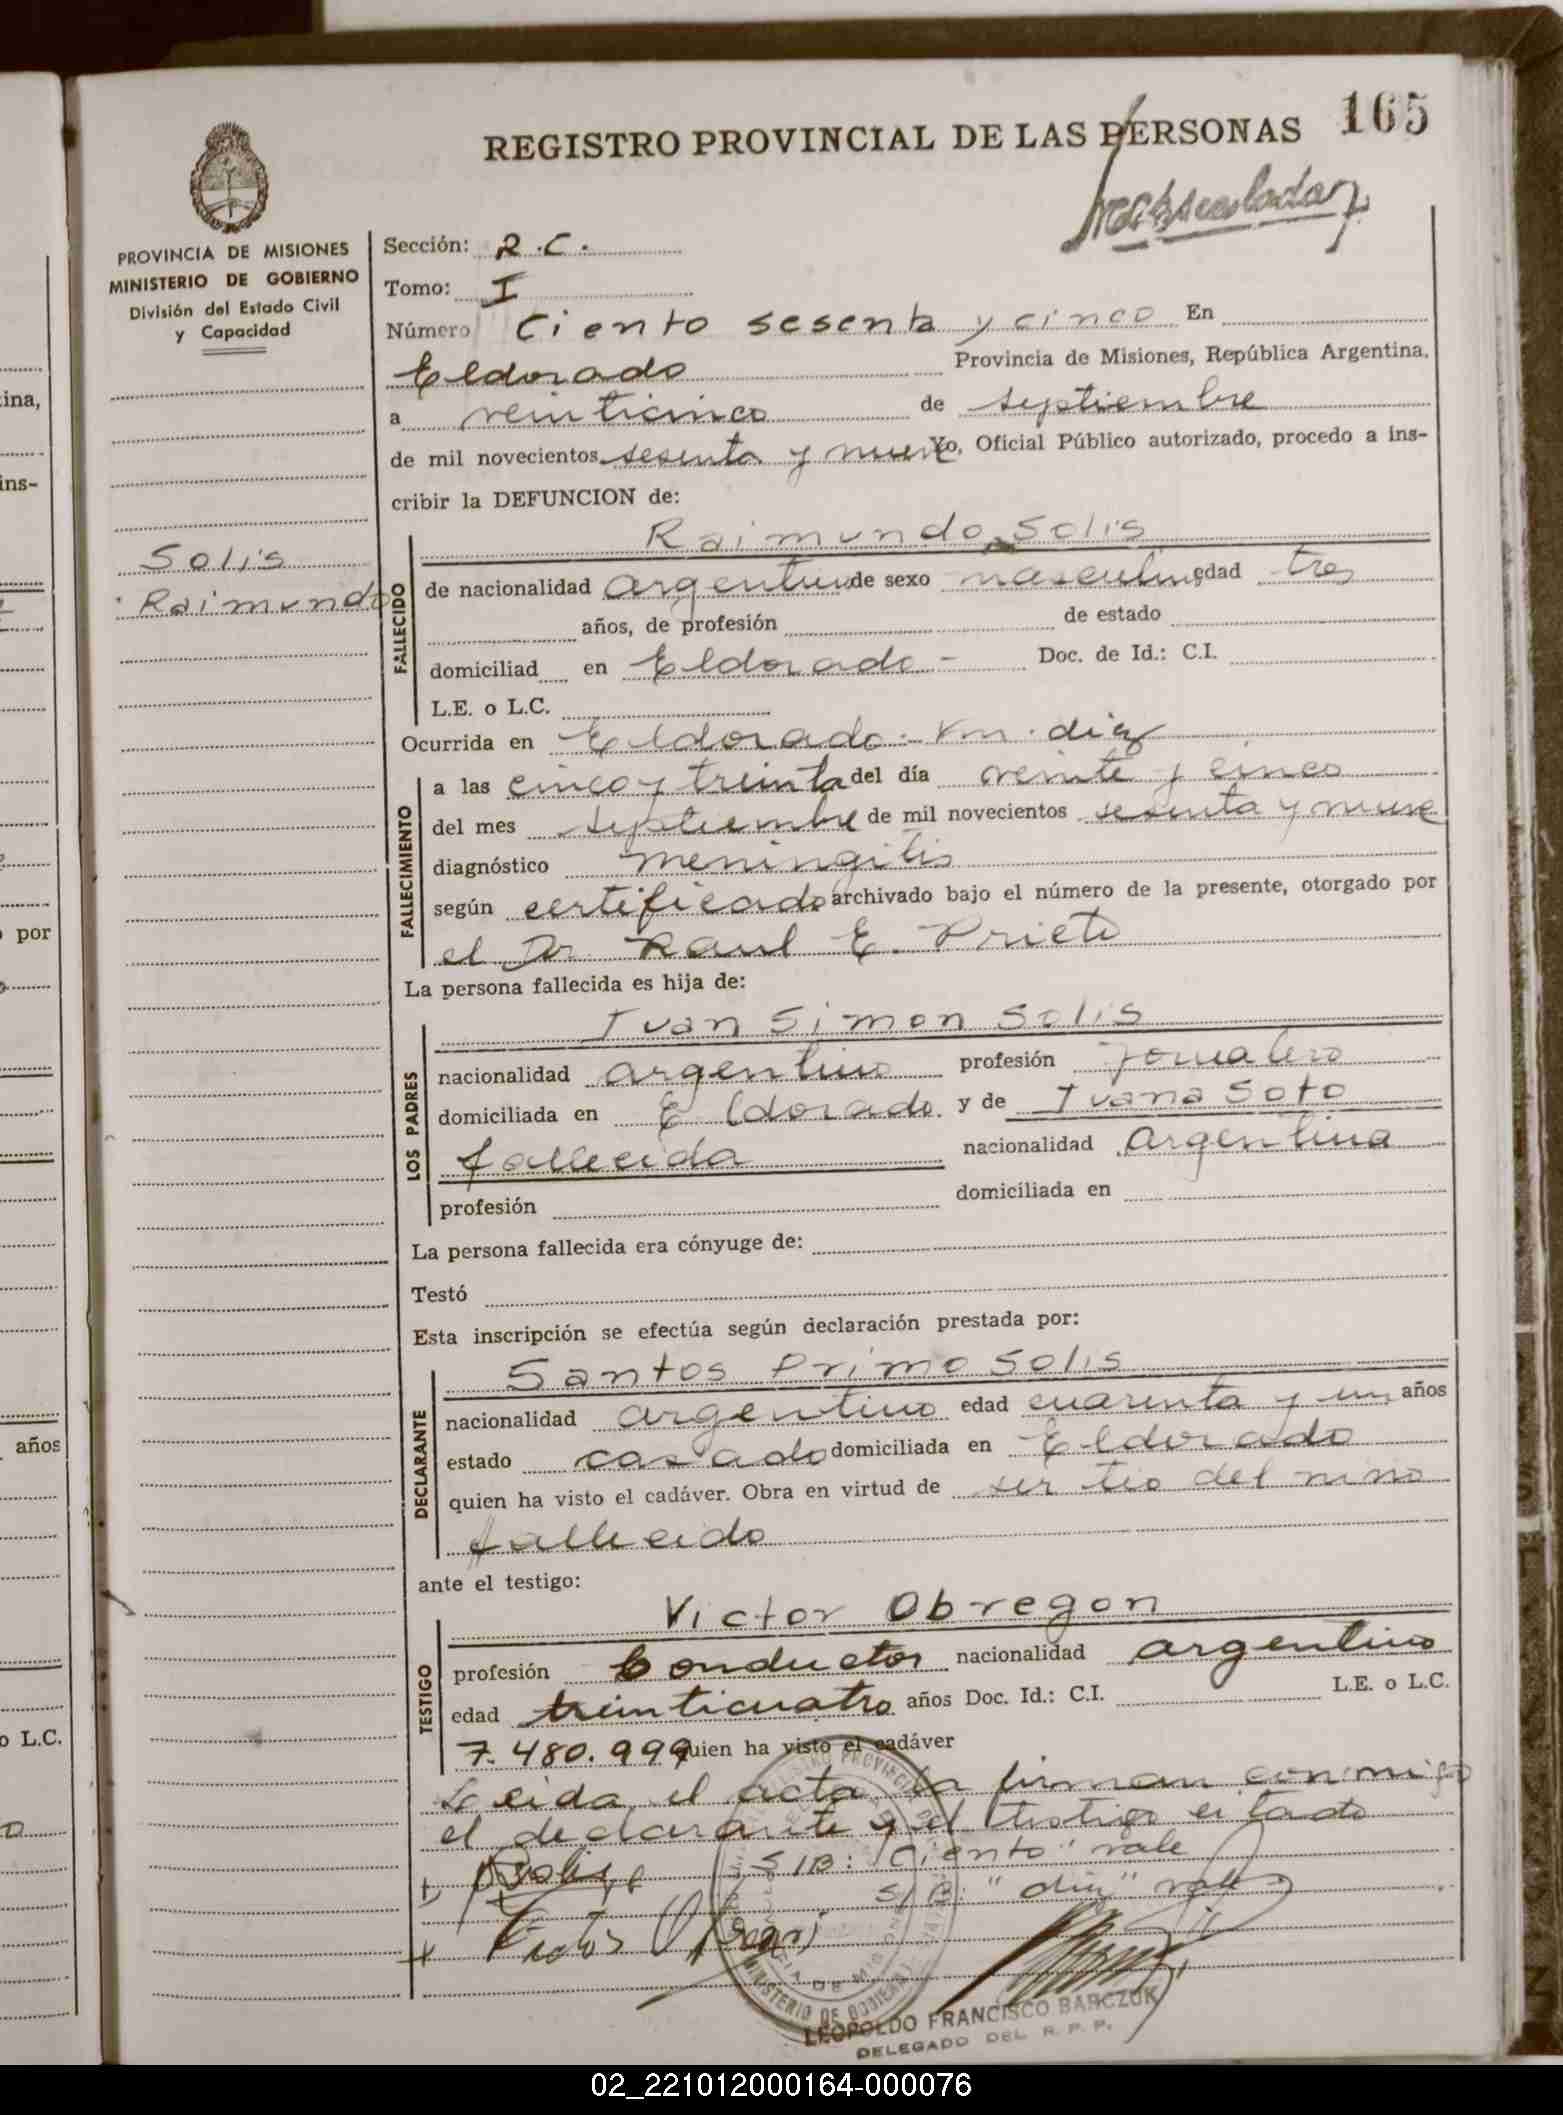 165
REGISTRO PROVINCIAL DE LAS PERSONAS
PROVINCIA DE MISIONES
MINISTERIO DE GOBIERNO
División del Estado Civil
y Capacidad
Solis
Raimundo
Sección: R.C.
Tomo: I
Número Ciento sesenta y cinco En
Eldorado Provincia de Misiones, República Argentina,
a veinticinco de septiembre
de mil novecientos sesenta y nueve Yo, Oficial Público autorizado, procedo a ins-
cribir la DEFUNCION de:
Raimundo Solis
FALLECIDO
de nacionalidad argentino de sexo masculino edad tres
años, de profesión de estado
domiciliad en Eldorado - Doc. de Id.: C.I.
L.E. o L.C.
Ocurrida en Eldorado - km. diez
FALLECIMIENTO
a las cinco y treinta del día veinte y cinco
del mes septiembre de mil novecientos sesenta y nueve
diagnóstico meningitis
según certificado archivado bajo el número de la presente, otorgado por
el Dr. Raul E. Prieto
La persona fallecida es hija de:
LOS PADRES
Juan Simon Solis
nacionalidad argentino profesión Jornalero
domiciliada en Eldorado y de Juana Soto
fallecida nacionalidad argentina
profesión domiciliada en
La persona fallecida era cónyuge de:
Testó
Esta inscripción se efectúa según declaración prestada por:
DECLARANTE
Santos Primo Solis
nacionalidad argentino edad cuarenta y un años
estado casado domiciliada en Eldorado
quien ha visto el cadáver. Obra en virtud de ser tio del nino
fallecido
ante el testigo:
TESTIGO
Victor Obregon
profesión Conductor nacionalidad argentino
edad treinticuatro años Doc. Id.: C.I. L.E. o L.C.
7.480.999 quien ha visto el cadáver
Leida el acta, la firman conmigo
el declarante y el testigo citado
S/B: "Ciento" vale
S/B. "diez" vale
LEOPOLDO FRANCISCO BARCZUK
DELEGADO DEL R. P. P.
ina,
ins-
por
años
o L.C.
02_221012000164-000076